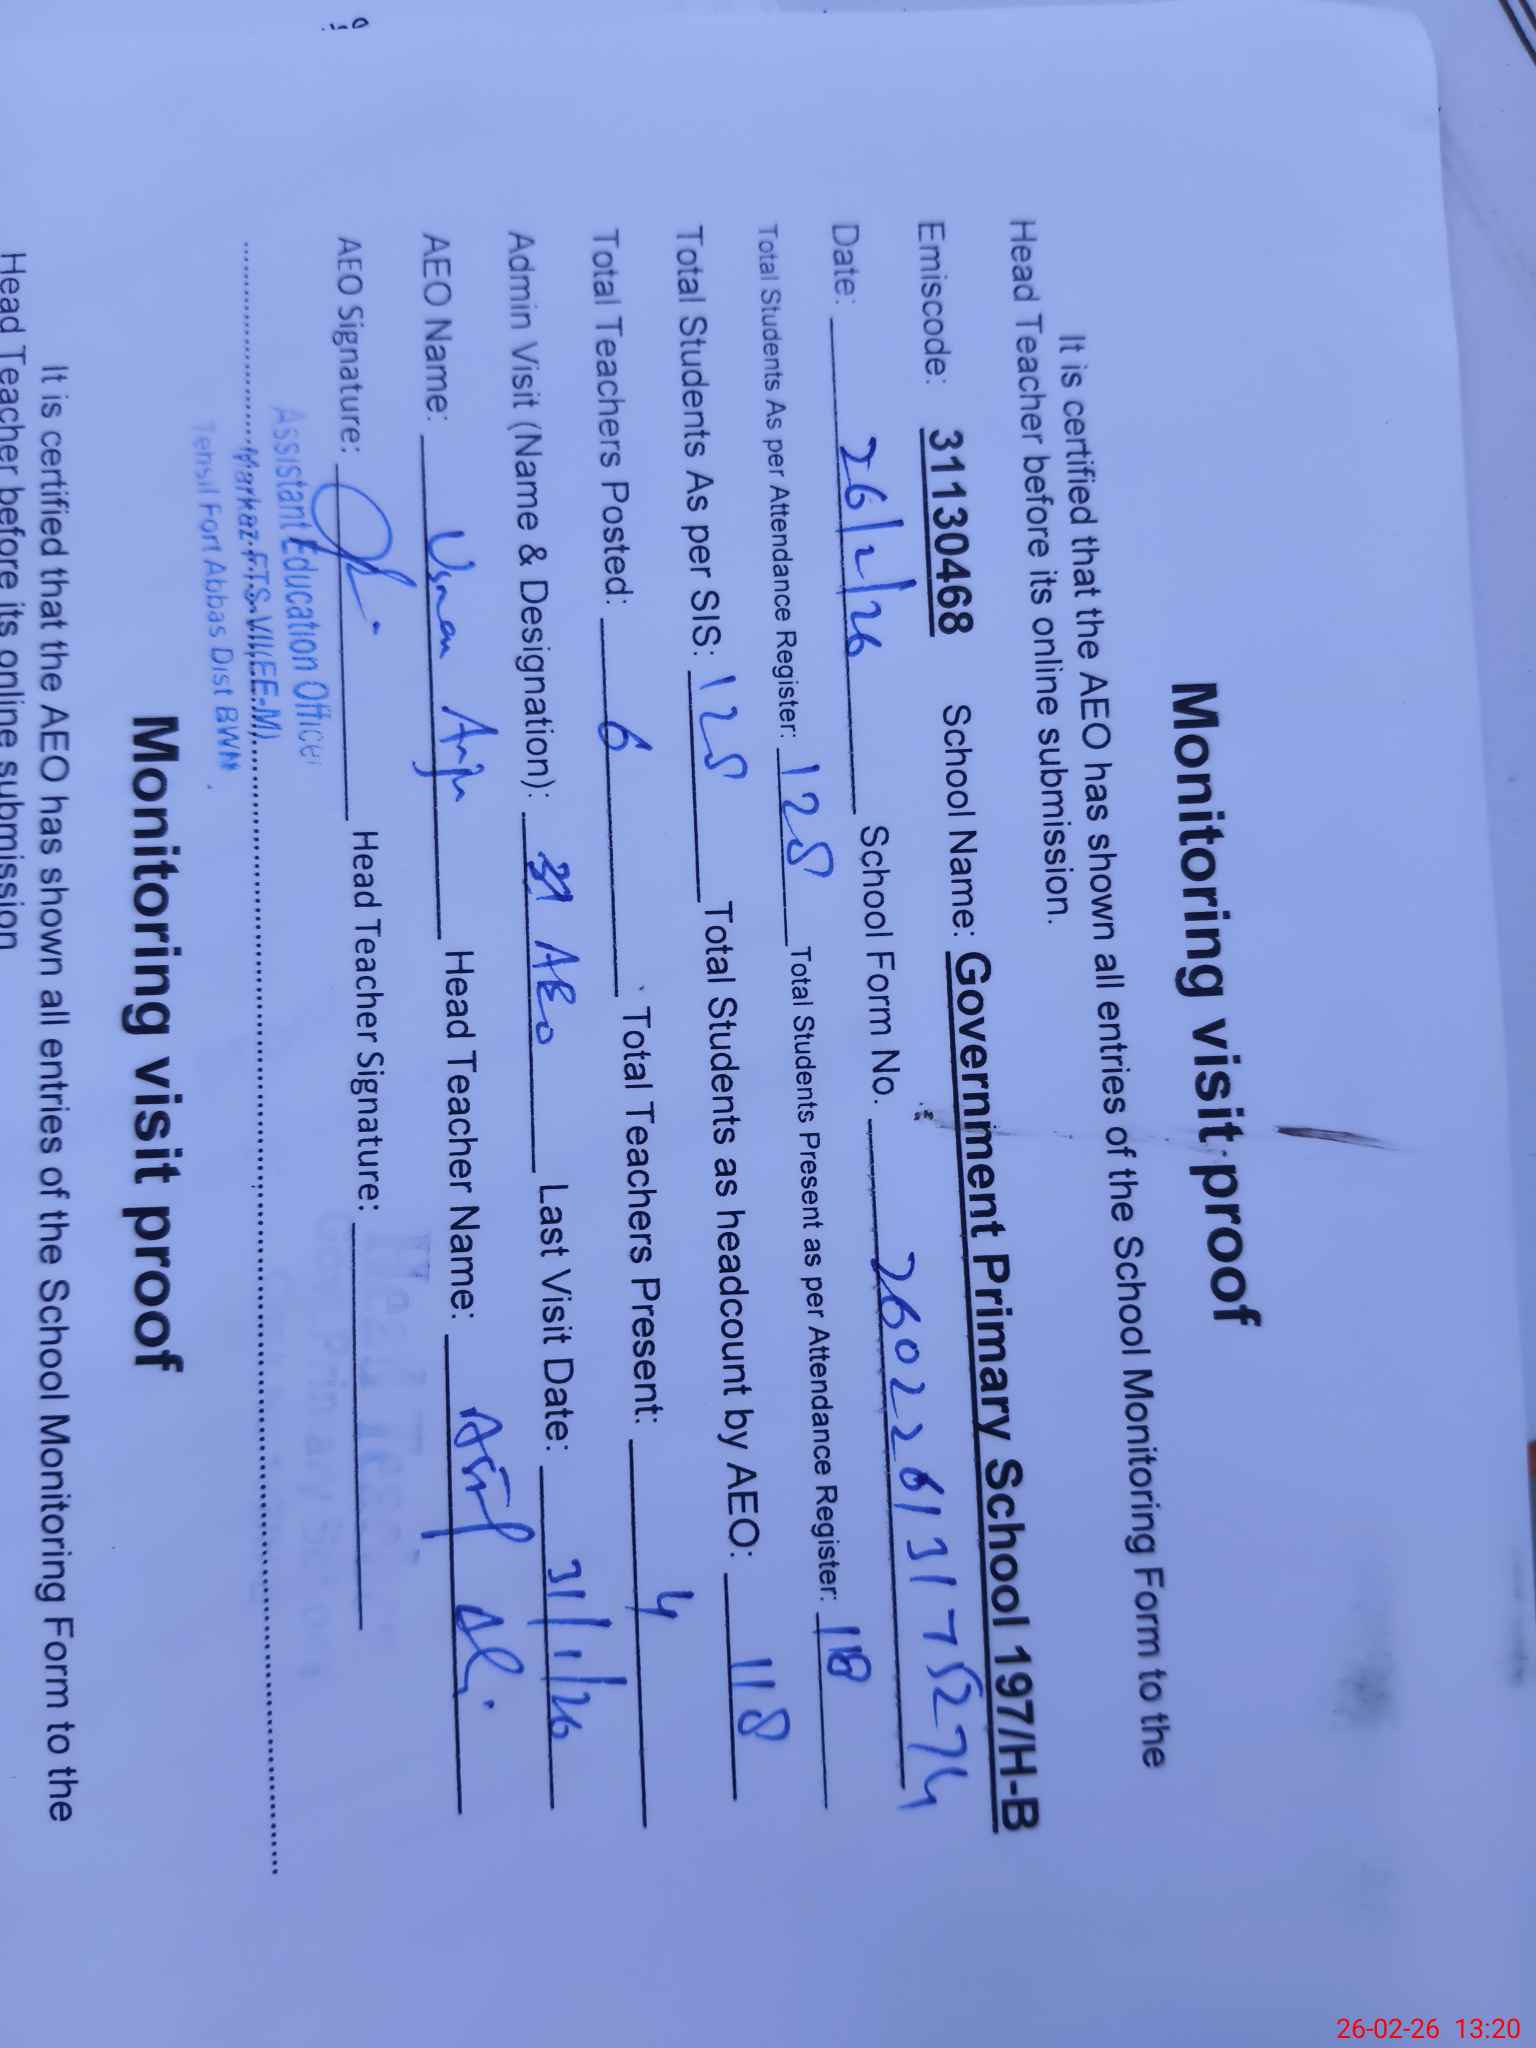 Monitoring visit proof
It is certified that the AEO has shown all entries of the School Monitoring Form to the
Head Teacher before its online submission.
Emiscode: 31130468 School Name: Government Primary School 197/H-B
Date: 26/2/26 School Form No. 26022613175274
Total Students As per Attendance Register: 128 Total Students Present as per Attendance Register: 118
Total Students As per SIS: 128 Total Students as headcount by AEO: 118
Total Teachers Posted: 6 Total Teachers Present: 4
Admin Visit (Name & Designation): AEO Last Visit Date: 31/1/26
AEO Name: Usman Head Teacher Name: Asif Ali
AEO Signature: Head Teacher Signature:
Assistant Education Officer
Markaz F.T.S.VII(EE-M)
Tehsil Fort Abbas Dist BWN
Monitoring visit proof
It is certified that the AEO has shown all entries of the School Monitoring Form to the
Head Teacher before its online submission
26-02-26 13:20